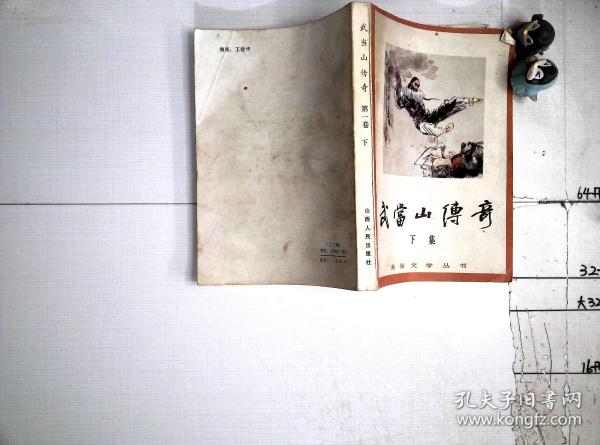 插图：王建华
武当山传奇 第一卷 下
山西人民出版社
武當山傳奇
下集
通俗文学丛书
64开
32
大32
16开
孔夫子旧书网
www.kongfz.com